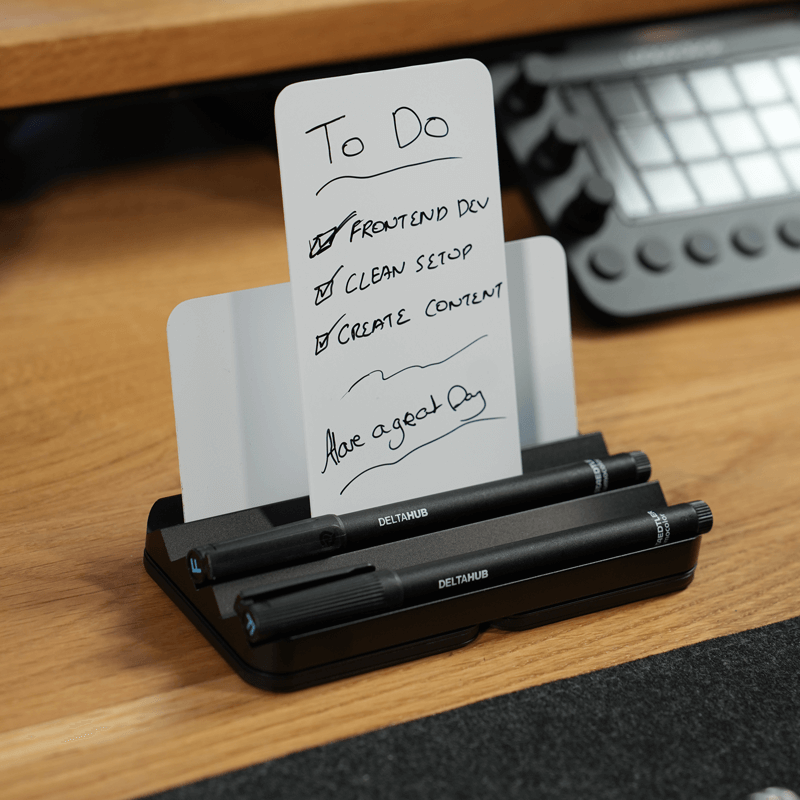 To Do
FRONTEND DEV
CLEAN SETUP
CREATE CONTENT
Have a great Day
DELTAHUB
DELTAHUB
F
F